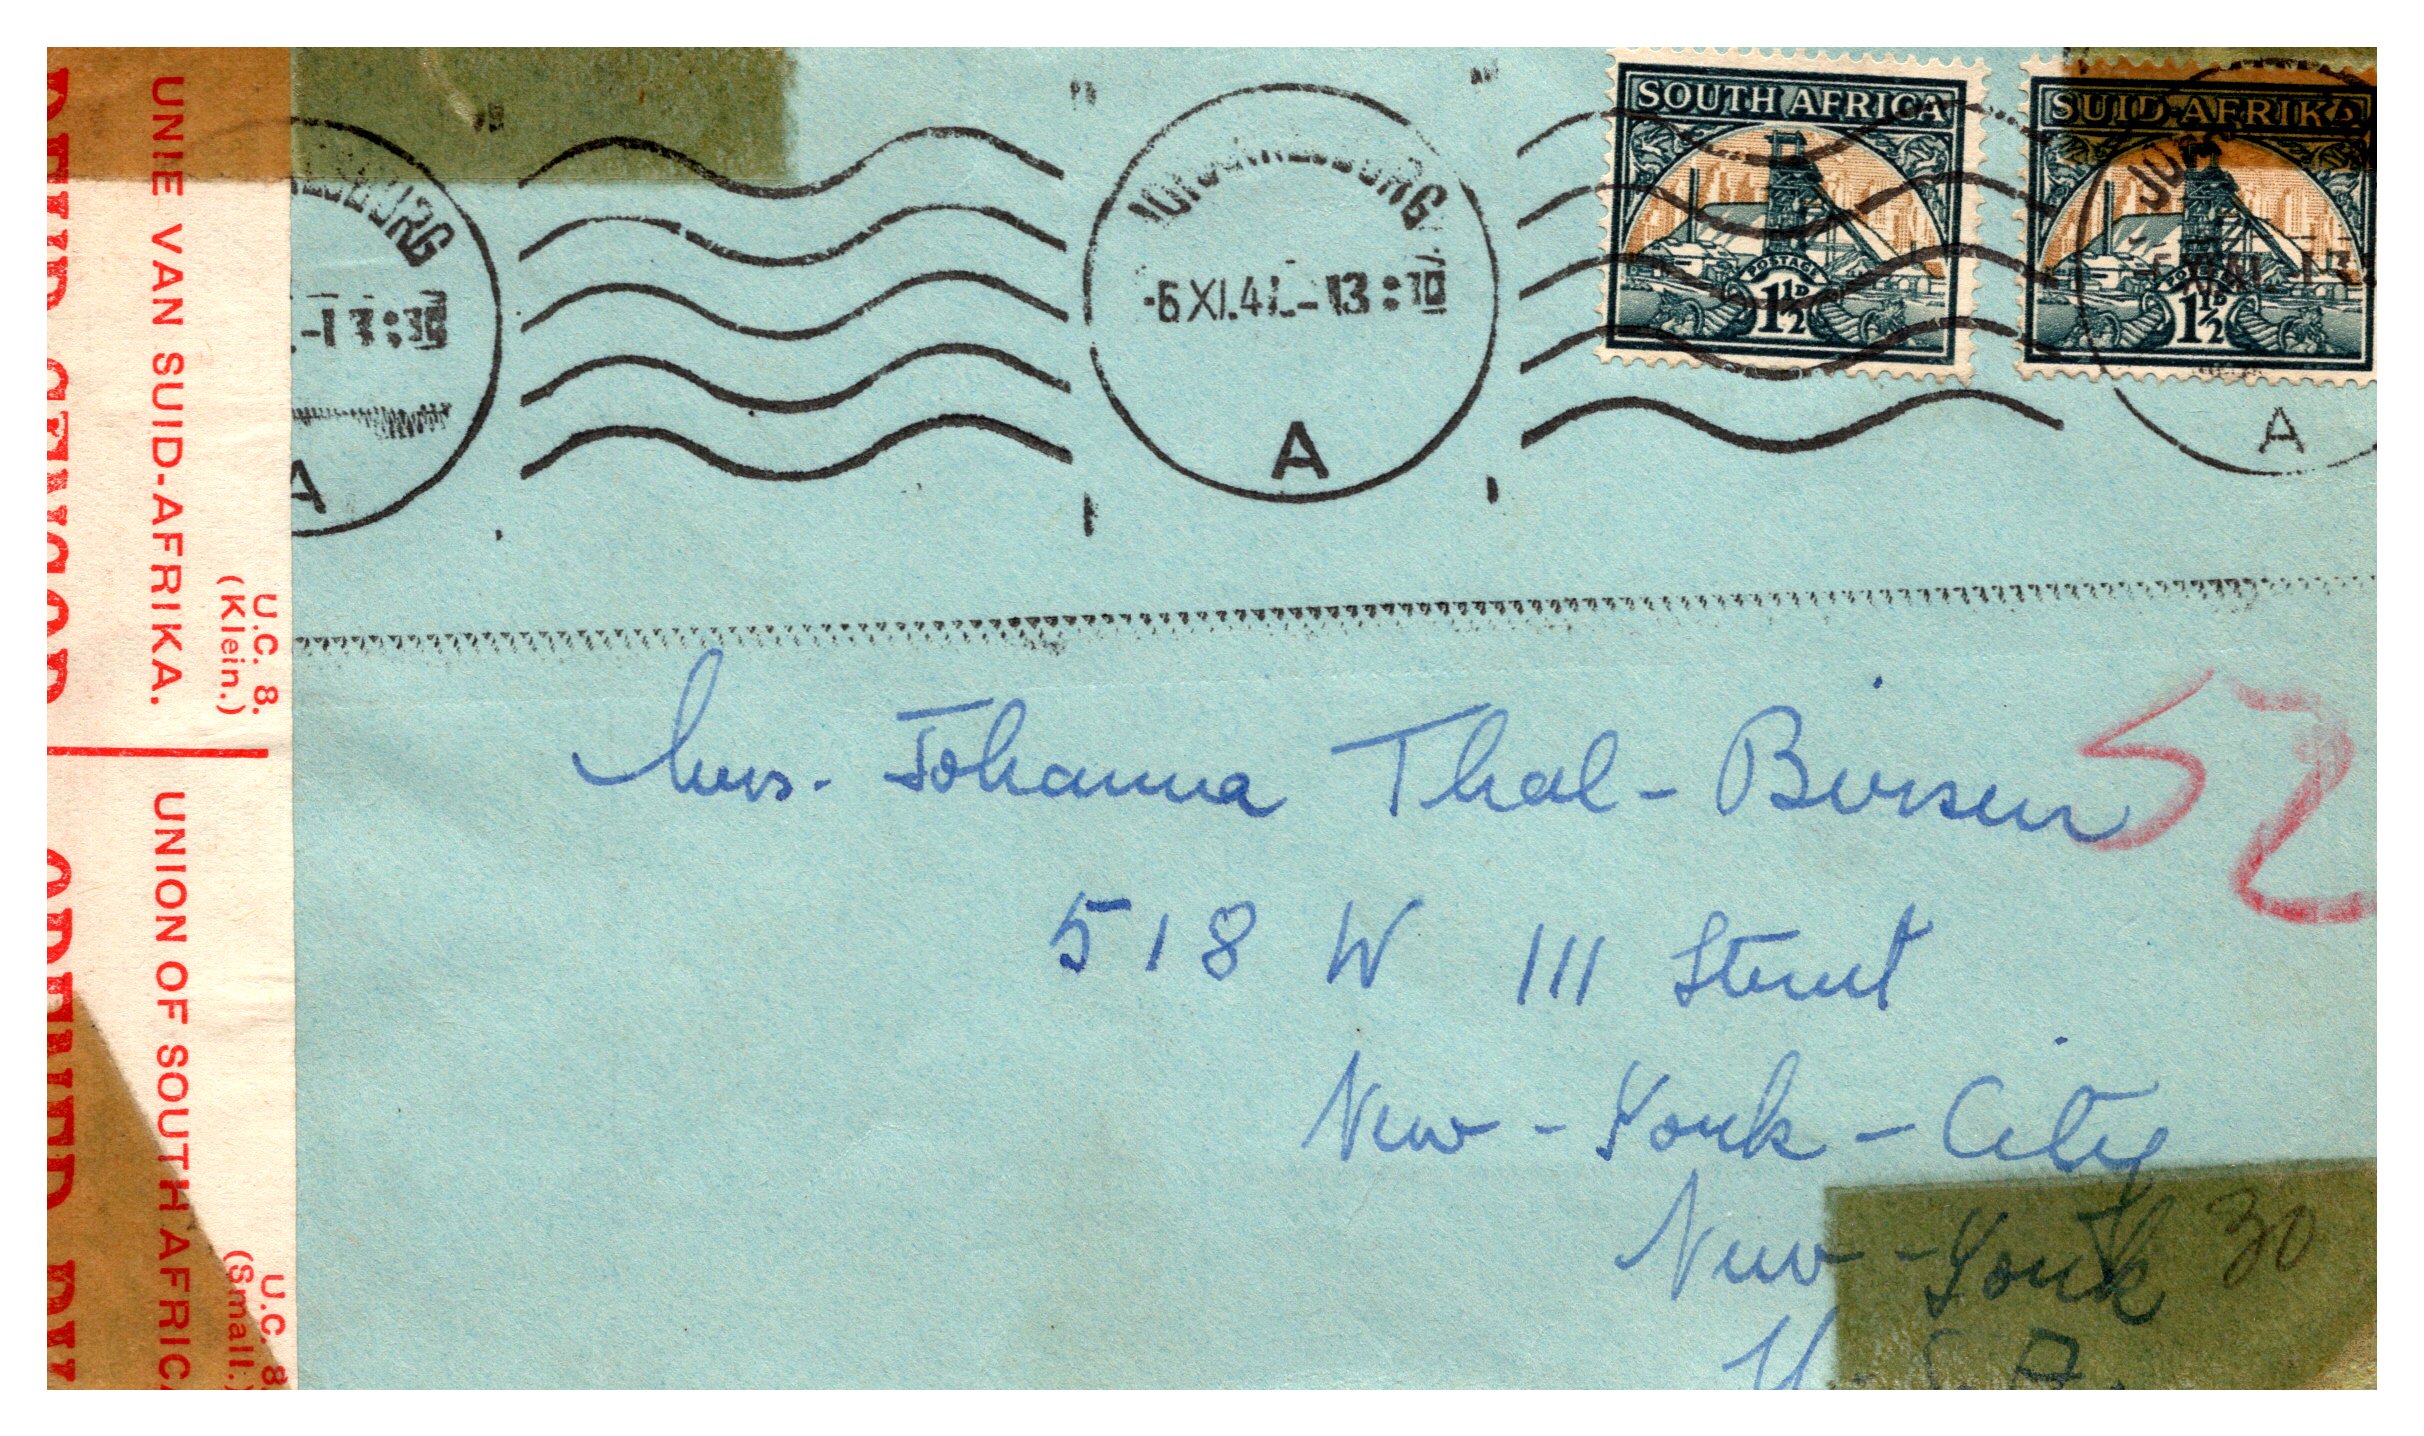 UNIE VAN SUID-AFRIKA.
U.C. 8.
(Klein.)
UNION OF SOUTH AFRICA
U.C. 8.
(Small.)
OPENED BY
JOHANNESBURG
-6 XI.41.-13:
A
A
SOUTH AFRICA
POSTAGE
1½D
SUID-AFRIKA
1½D
A
Mrs. Johanna Thal-
52
518 W 111 Street
New-York-City
New-York 30
U.S.A.